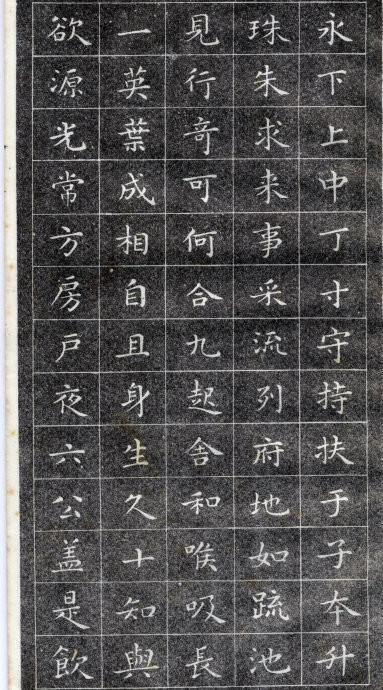 永下上中丁寸守持扶于子本升
珠朱求来事采流列府地如䟽池
見行奇可何合九起舎和喉吸長
一英葉成相自且身生久十知與
欲源光常方房戸夜六公盖是飲